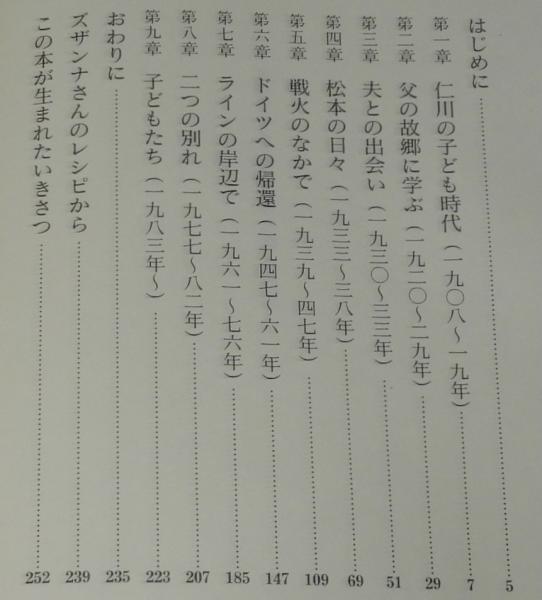 はじめに……………………5
第一章 仁川の子ども時代（一九〇八～一九年）……………………7
第二章 父の故郷に学ぶ（一九二〇～二九年）……………………29
第三章 夫との出会い（一九三〇～三三年）……………………51
第四章 松本の日々（一九三三～三八年）……………………69
第五章 戦火のなかで（一九三九～四七年）……………………109
第六章 ドイツへの帰還（一九四七～六一年）……………………147
第七章 ラインの岸辺で（一九六一～七六年）……………………185
第八章 二つの別れ（一九七七～八二年）……………………207
第九章 子どもたち（一九八三年～）……………………223
おわりに……………………235
ズザンナさんのレシピから……………………239
この本が生まれたいきさつ……………………252